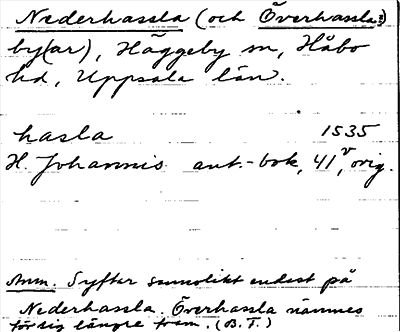 Nederhassla (och Överhassla?)
by(ar), Häggeby sn, Håbo
hd, Uppsala län.
hasla 1535
H. Johannis ant.-bok, 41v, orig.
Anm. Syftar sannolikt endast på
Nederhassla. Överhassla nämnes
för sig längre fram. (B.T.)